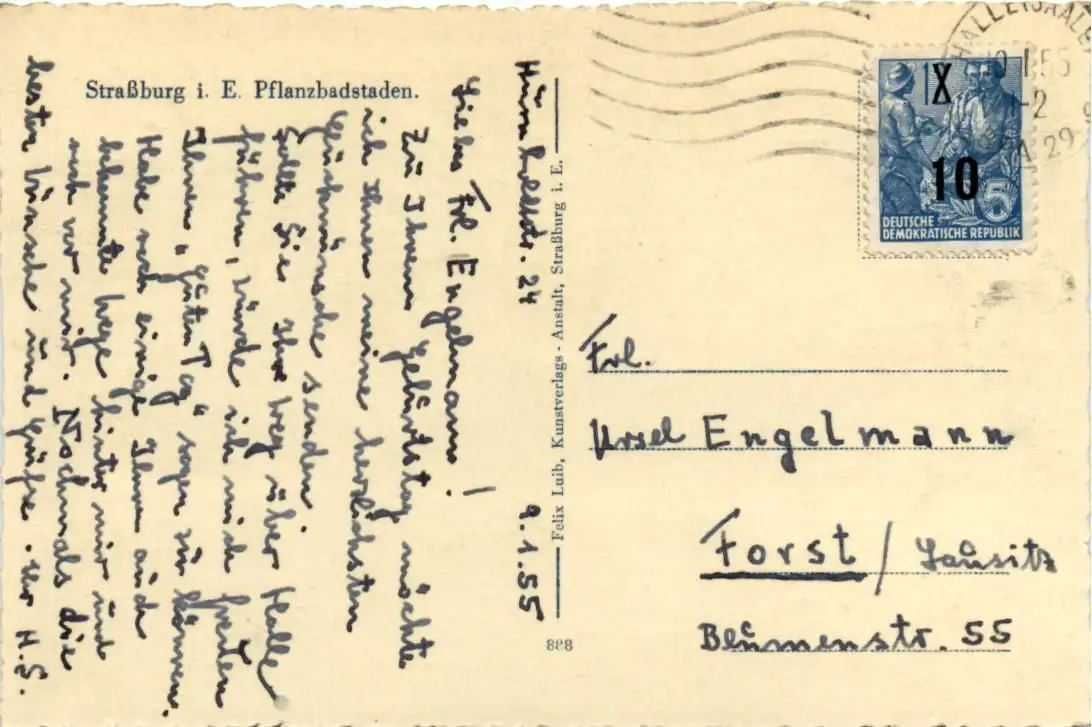 Straßburg i. E. Pflanzbadstaden.
Humboldtstr. 24 9.1.55
Liebes Frl. Engelmann!
Zu Ihrem Geburtstag möchte
ich Ihnen meine herzlichsten
Glückwünsche senden.
Sollte Sie Ihr Weg über Halle
führen, würde ich mich freuen
Ihnen „guten Tag" sagen zu können.
Habe noch einige Ihnen auch
bekannte Wege hinter mir und
noch vor mir. Nochmals die
besten Wünsche und Grüße. Ihr H.S.
Felix Luib, Kunstverlags-Anstalt, Straßburg i. E.
888
HALLE (SAALE
X
10
5
DEUTSCHE
DEMOKRATISCHE REPUBLIK
Frl.
Ursel Engelmann
Forst / Lausitz
Blumenstr. 55